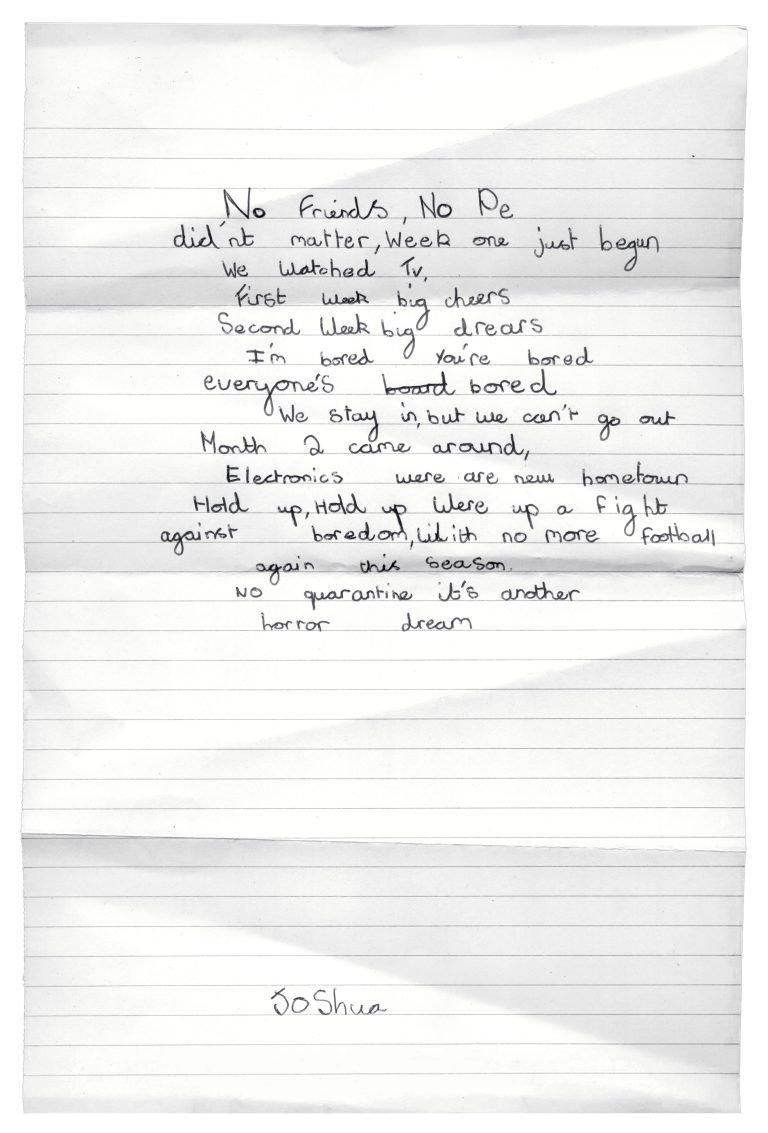 No Friends, No Pe
did'nt matter, Week one just begun
We Watched Tv,
First week big cheers
Second Week big drears
I'm bored You're bored
everyone's board bored
We stay in, but we can't go out
Month 2 came around,
Electronics were are new hometown
Hold up, Hold up Were up a fight
against boredom, With no more football
again this season.
No quarantine it's another
horror dream
JoShua